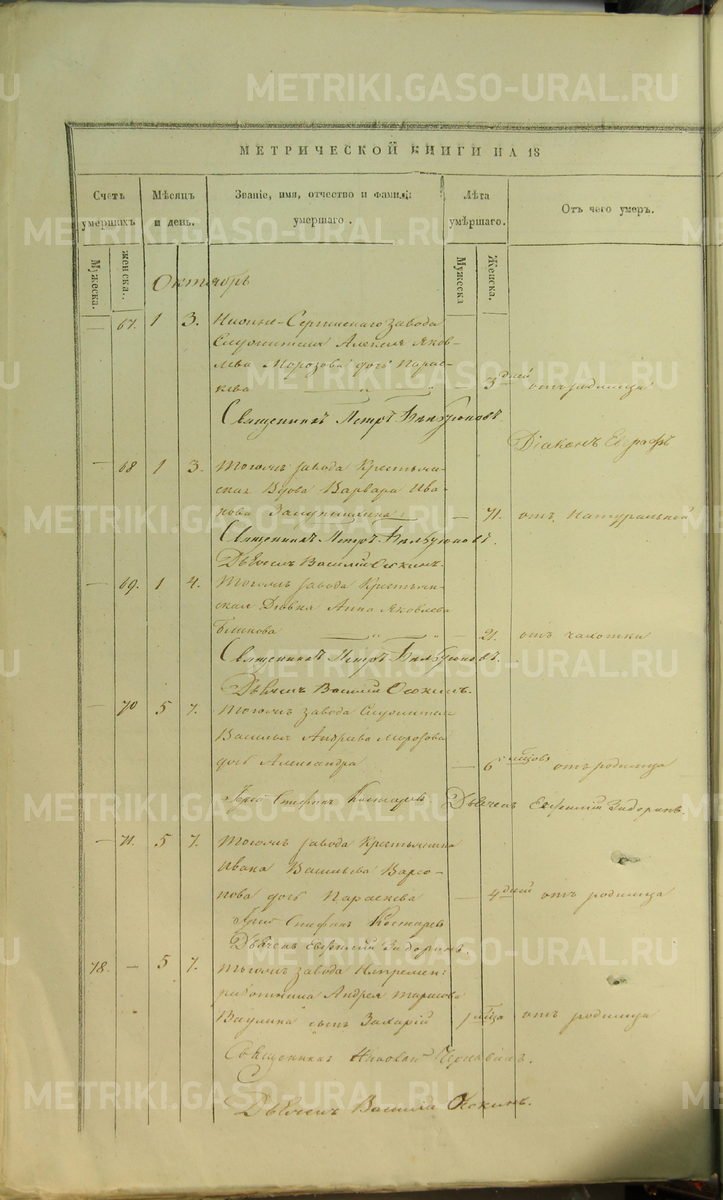 МЕТРИЧЕСКОЙ КНИГИ НА 18
Счетъ умершихъ
Мѣсяцъ и день.
Званіе, имя, отчество и фамилія умершаго.
Лѣта умершаго.
Отъ чего умеръ.
Мужеска.
Женска.
Мужеска
Женска.
Октябрь
67. 1 3. Нижне-Сергинскаго завода
Служителя Алексѣя Яков-
лева Морозова дочь Парас-
кева 3 дней отъ родимца
Священникъ Петръ
Діаконъ
68 1 3. Тогожъ завода Крестьян-
ская Вдова Варвара Ива-
нова 71. отъ Натуральной
Священникъ Петръ
Дьячекъ Василій Оскинъ.
69. 1 4. Тогожъ завода Крестьян-
ская Дѣвка Анна Яковлева
21. отъ чахотки
Священникъ Петръ
Дьячекъ Василій Оскинъ.
70 5 7. Тогожъ завода Служителя
Василья Андреева Морозова
дочь Александра 6 мѣсяцовъ отъ родимца
Стефанъ Костаревъ Дьячекъ Евфимій Задоринъ.
71. 5 7. Тогожъ завода Крестьянина
Ивана Васильева
дочь Параскева 4 дней отъ родимца
Стефанъ Костаревъ
Дьячекъ Евфимій Задоринъ.
78. 5 7. Тогожъ завода Непремен:
работника Андрея
Ваулина сынъ Захарій 1 мѣсяца отъ родимца
Священникъ Чернавинъ.
Дьячекъ Василій Оскинъ.
METRIKI.GASO-URAL.RU